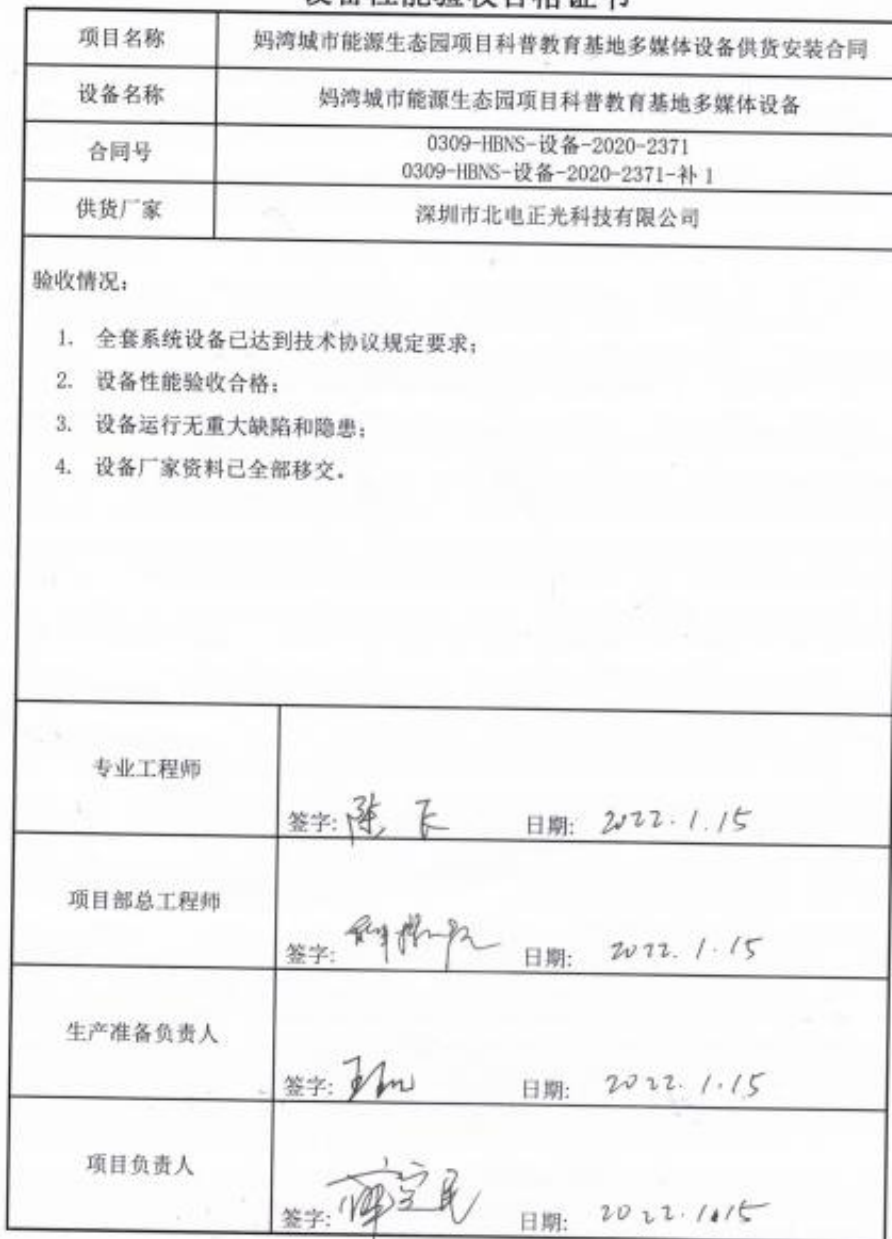 设备性能验收合格证书
项目名称 妈湾城市能源生态园项目科普教育基地多媒体设备供货安装合同
设备名称 妈湾城市能源生态园项目科普教育基地多媒体设备
合同号 0309-HBNS-设备-2020-2371
0309-HBNS-设备-2020-2371-补 1
供货厂家 深圳市北电正光科技有限公司
验收情况：
1. 全套系统设备已达到技术协议规定要求；
2. 设备性能验收合格；
3. 设备运行无重大缺陷和隐患；
4. 设备厂家资料已全部移交。
专业工程师
签字: 陈飞 日期: 2022.1.15
项目部总工程师
签字: 日期: 2022.1.15
生产准备负责人
签字: 日期: 2022.1.15
项目负责人
签字: 日期: 2022.1.15